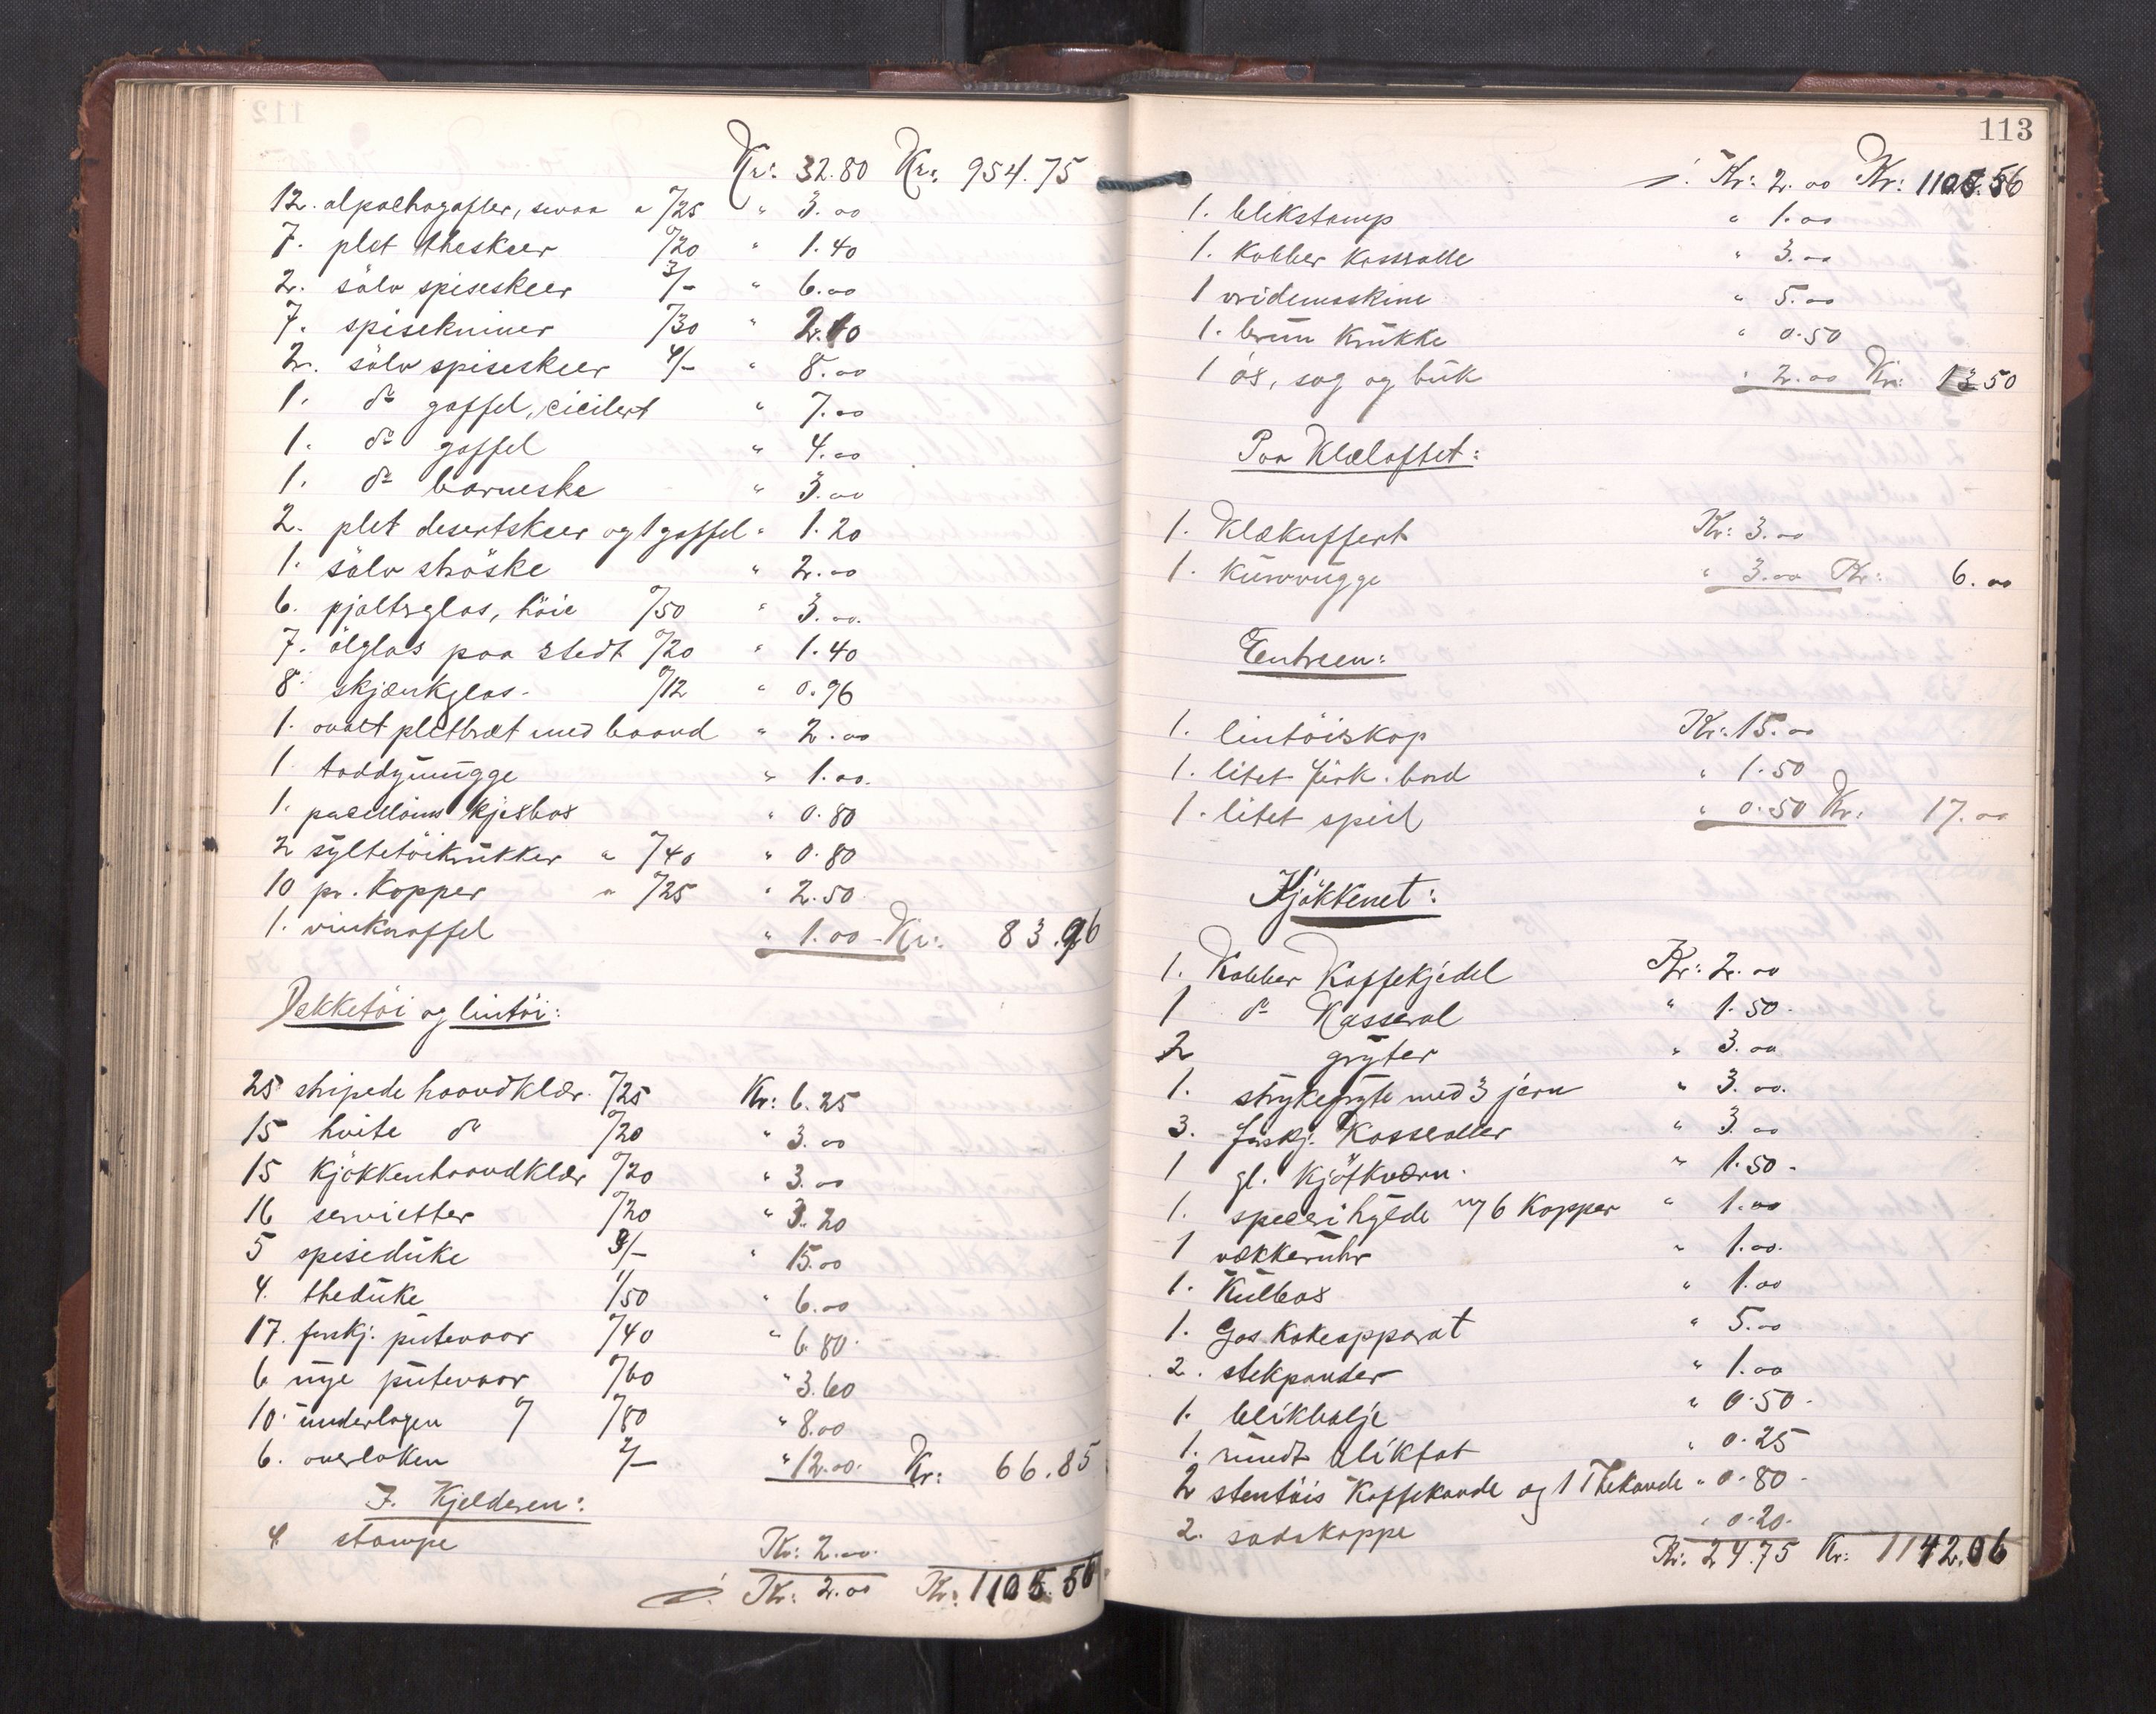 Kr: 32.80 Kr: 954.75
12. alpachagafler, smaa a /25 " 3.00
7. plet theskeer /20 " 1.40
2. sölv spiseskeer 3/- " 6.00
7. spisekniver /30 " 2.10
2. sölv spiseskeer 4/- " 8.00
1. do gaffel, cicilert " 7.00
1. do gaffel " 4.00
1. do barneske " 3.00
2. plet desertskeer og 1 gaffel " 1.20
1. sölv ströske " 2.00
6. pjolterglas, höie /50 " 3.00.
7. ölglas paa stedt /20 " 1.40
8. skjænkglas. /12 " 0.96
1. ovalt pletbræt med baand " 2.00
1 toddymugge " 1.00.
1. kjeksbos " 0.80
2 syltetöikrukker a /40 " 0.80
10 pr. Kopper a /25 " 2.50
1. " 1.00 Kr: 83.96
Dekketöi og lintöi:
25 stripede haandklær. /25 Kr: 6.25
15 hvite do /20 " 3.00
15 kjökkenhaandklær /20 " 3.00
16 servietter /20 " 3.20
5 spiseduke 3/- " 15.00
4. theduke 1/50 " 6.00
17. forskj. putevaar /40 " 6.80.
6 nye putevaar /60 " 3.60
10. underlagen /80 " 8.00
6. overlaken 2/- " 12.00. Kr: 66.85
I. Kjelderen:
4 stampe Kr: 2.00.
Kr: 2.00 Kr: 1105.56
113
Kr: 2.00 Kr: 1105.56
1. blikstamp " 1.00
1. Kobber Kasserolle " 3.00
1 vridemaskine " 5.00
1. brun Krukke " 0.50
1 ös, sag og buk " 2.00 Kr: 13.50
Paa Klæloftet:
1. Klækuffert Kr: 3.00
1. Kurvvugge " 3.00 Kr: 6.00
Entreen:
1. lintöiskap Kr: 15.00
1. litet firk. bord " 1.50
1. litet speil " 0.50 Kr: 17.00
Kjökkenet:
1. Kobber Kaffekjedel Kr: 2.00
1 do Kasserol " 1.50.
2 gryter " 3.00
1. strykegryte med 3 jern " 3.00.
3. forskj. Kasseroller " 3.00
1 gl. Kjötkværn. " 1.50.
1. specerihylde m/ 6 Kopper " 1.00
1 vækkeruhr " 1.00.
1. Kulbos " 1.00
1. Gas Kokeapparat " 5.00
2. stekpander " 1.00
1. blikbalje " 0.50.
1. rundt blikfat " 0.25
2 stentöis Kaffekande og 1 Thekande " 0.80.
2. sodakoppe " 0.20.
Kr: 24.75 Kr: 1142.06